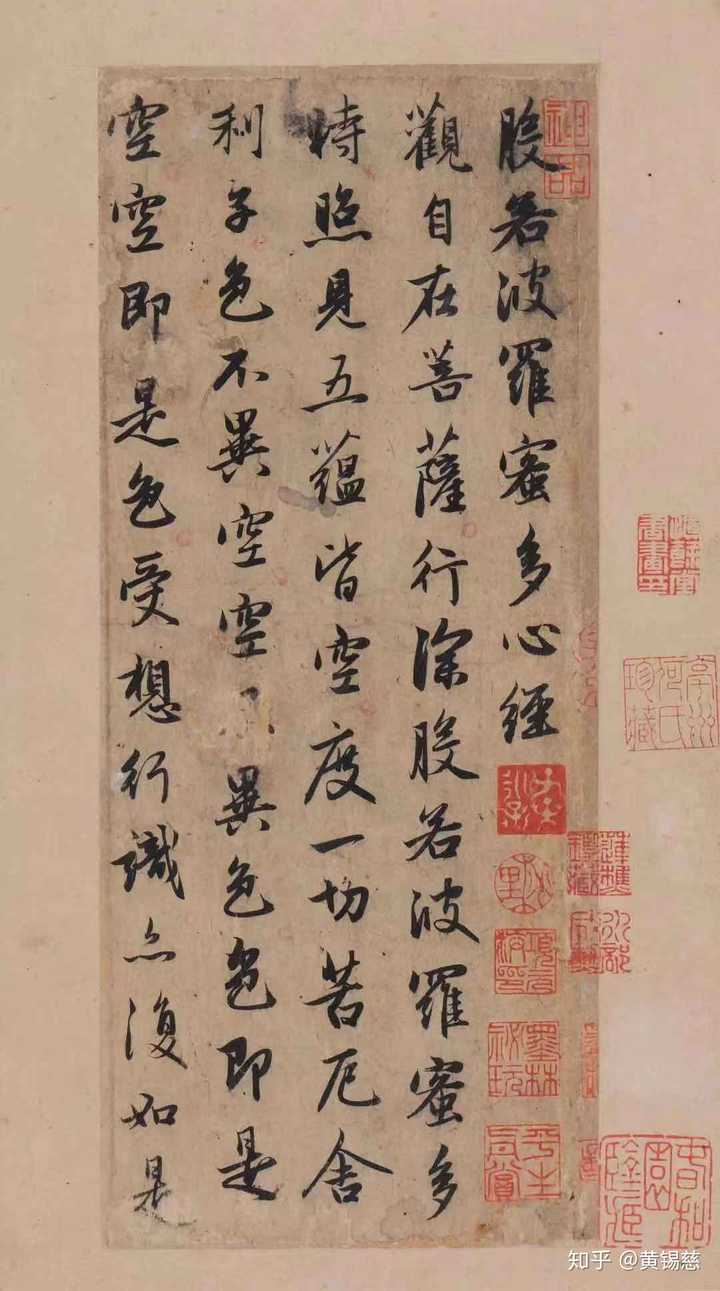 神品
般若波羅蜜多心經
觀自在菩薩行深般若波羅蜜多
時照見五蘊皆空度一切苦厄舍
利子色不異空空不異色色即是
空空即是色受想行識亦復如是
亭州何氏珍藏
墨林祕玩
平生真賞
知乎 @黄锡慈